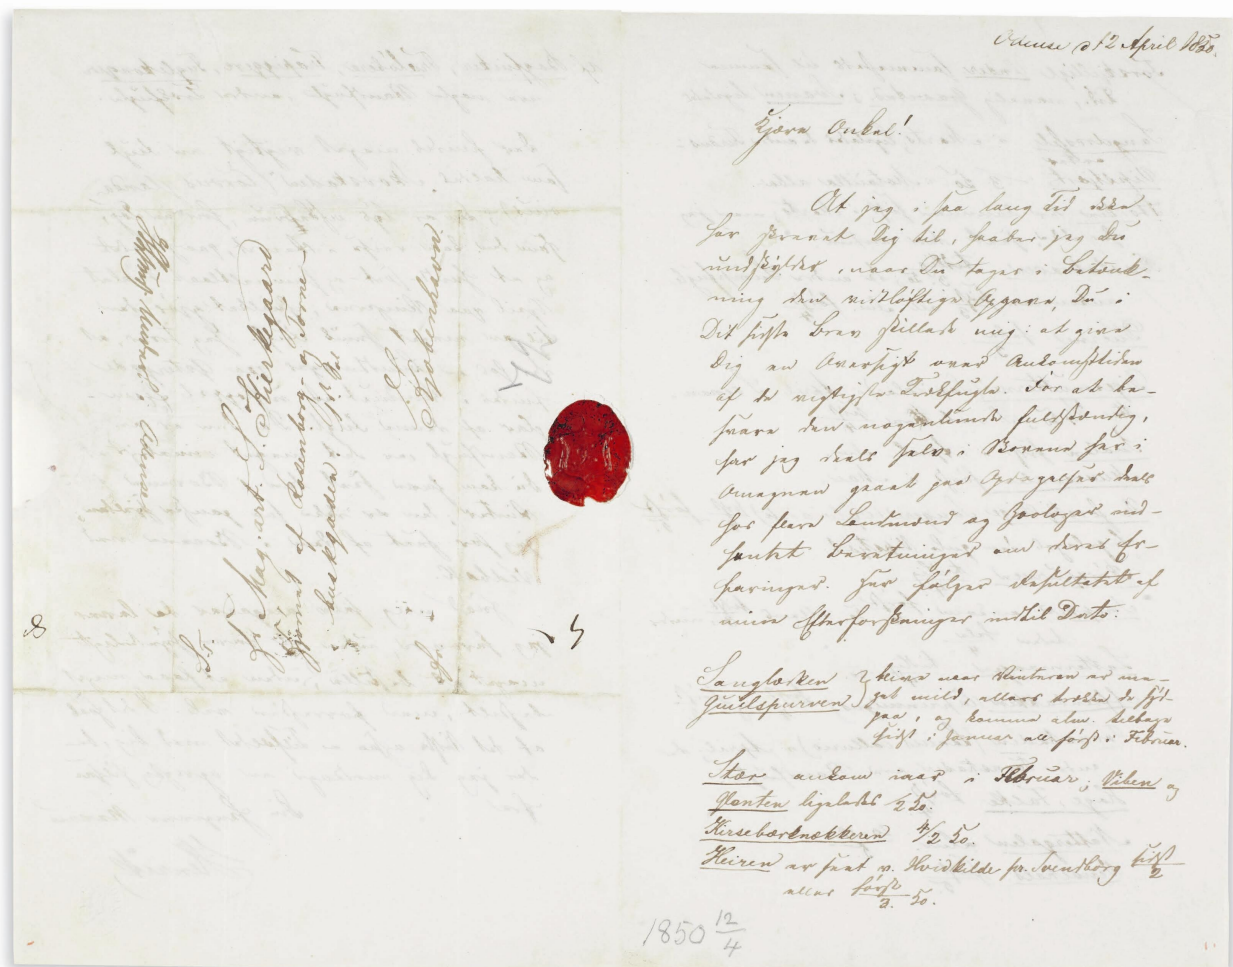 Odense d 12 April 1850.
Kjære Onkel!
At jeg i saa lang Tid ikke
har skrevet Dig til, haaber jeg Du
undskylder, naar Du tager i Betænk-
ning den vidtløftige Opgave, Du i
Dit sidste Brev stillede mig: at give
Dig en Oversigt over Ankomsttiden
af de vigtigste Trækfugle. For at be-
svare den nogenlunde fuldstændig,
har jeg deels selv i Skovene her i
Omegnen gaaet paa Opdagelser deels
hos flere Landmænd og Zoologer ind-
hentet Beretninger om deres Er-
faringer. Her følger Resultatet af
mine Efterforskninger indtil Dato:
Sanglærken } blive naar Vinteren er me-
Guulspurven } get mild, ellers trække de syd-
paa, og komme alm. tilbage
sidst i Januar ell. først i Februar.
Stær ankom iaar i Februar; Viben og
Glenten ligeledes /2 50.
Kirsebærknækkeren 4/2 50.
Heiren er seet v. Hvidkilde pr. Svendborg sidst/2
eller først/3. 50.
1850 12/4
S. T.
Hr Mag: art. S. Kierkegaard
Hjørnet af Rosenborg- og Torne-
buskgaden.
Kjøbenhavn.